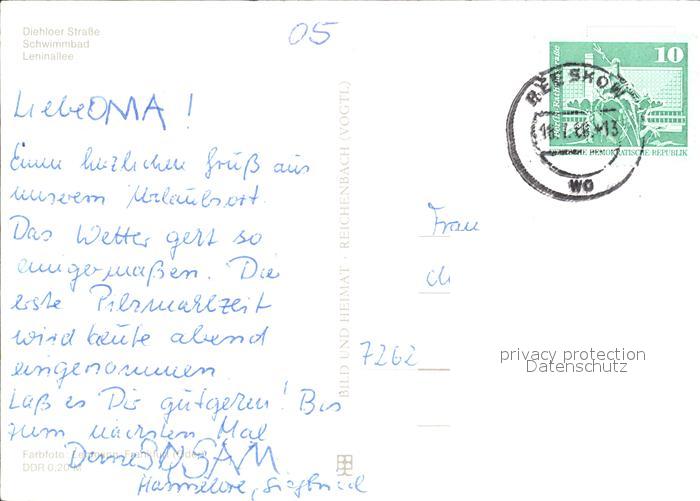 Diehloer Straße
Schwimmbad
Leninallee
05
10
BEESKOW
DEMOKRATISCHE REPUBLIK
Liebe OMA !
Einen herzlichen Gruß aus
unserem Urlaubsort.
Das Wetter geht so
einigermaßen. Die
erste Pilzmahlzeit
wird heute abend
eingenommen.
Laß es Dir gutgehen! Bis
zum nächsten Mal
Deine SUSANN
Hannelore, Siegfried
Farbfoto:
DDR 0,20 M
BILD UND HEIMAT · REICHENBACH (VOGTL)
Frau
7262
privacy protection
Datenschutz